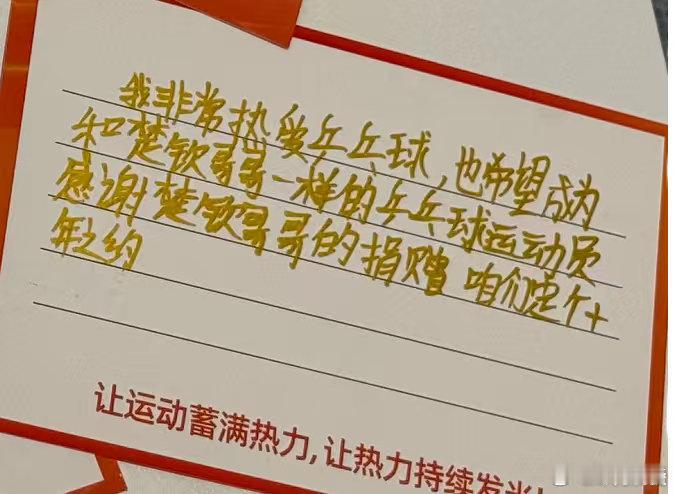 我非常热爱乒乓球,也希望成为
和楚钦哥哥一样的乒乓球运动员
感谢楚钦哥哥的捐赠 咱们定个十
年之约
让运动蓄满热力,让热力持续发光!